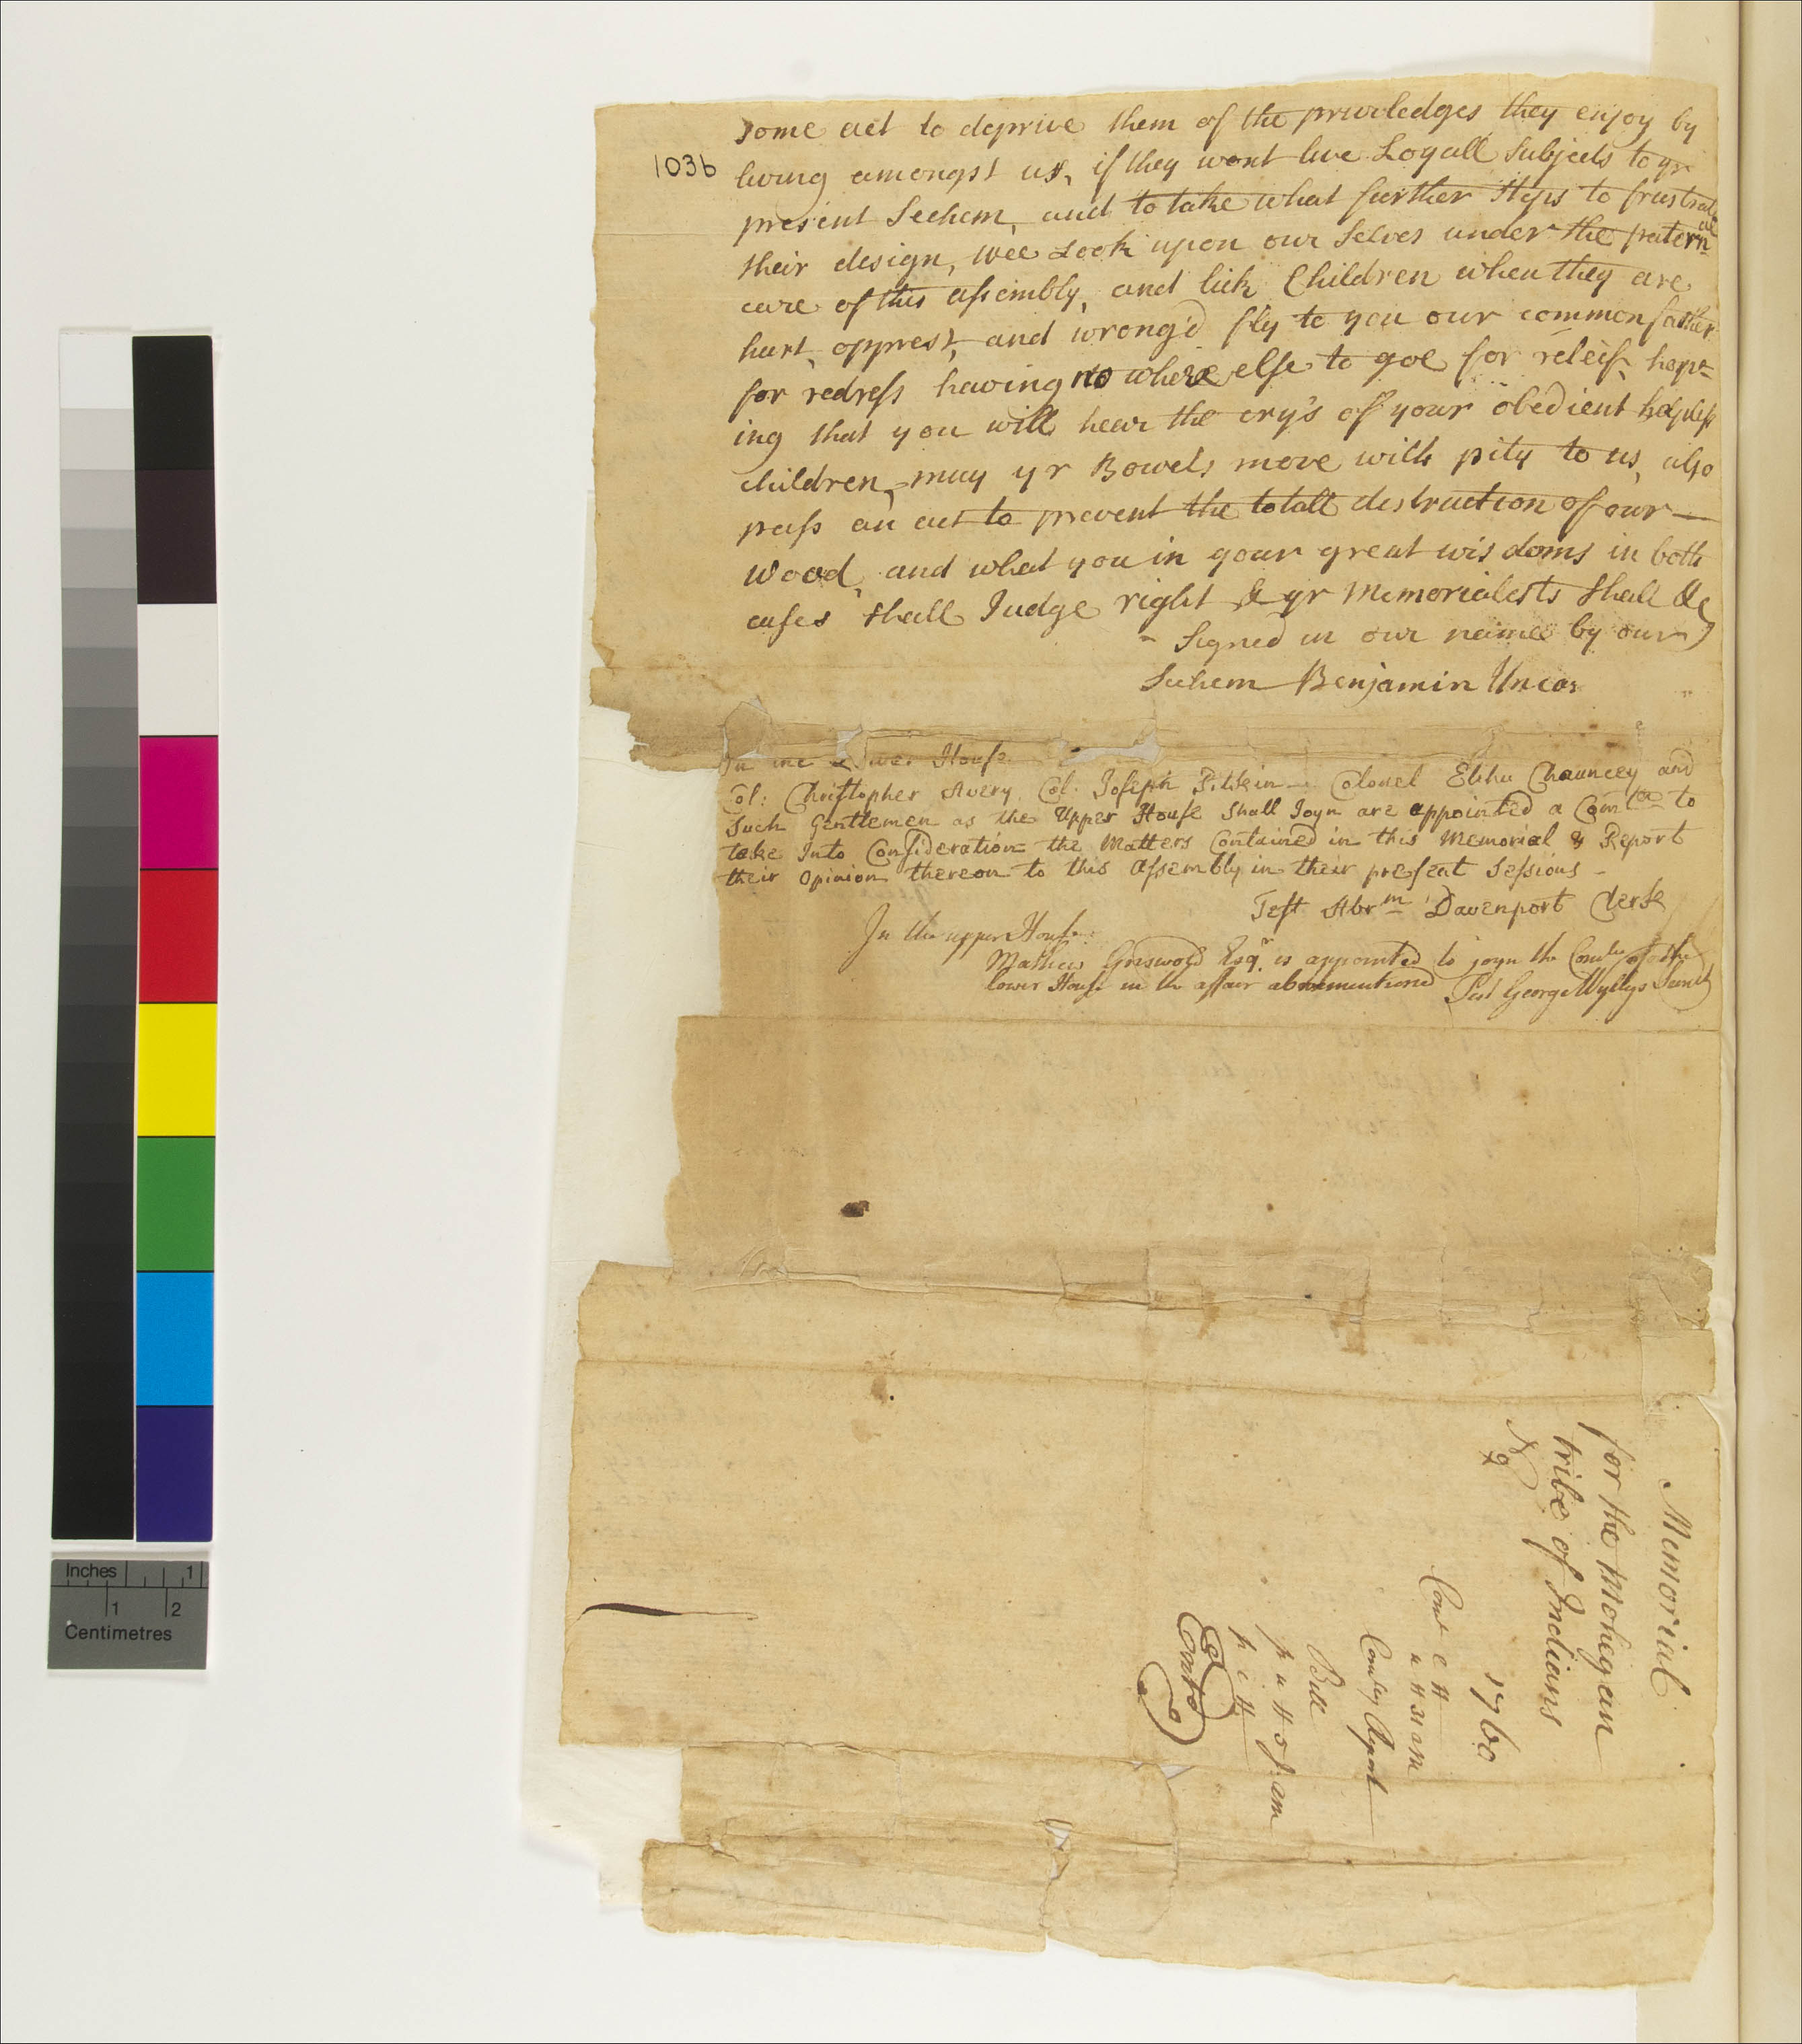 103b
some act to deprive them of the priviledges they enjoy by
living amongst us, if they wont live Loyall Subjects to yr
present Sechem, and to take what further Steps to frustrate
their design, wee Look upon our Selves under the paternal
care of this assembly, and lick Children when they are
hurt, opprest, and wrong'd fly to you our common father
for redress having no where else to goe for releif, hope-
ing that you will hear the cry's of your obedient helpless
children, may yr Bowels move with pity to us, also
pass an act to prevent the totall destruction of our
Wood, and what you in your great wisdoms in both
cases shall Judge right & yr Memorialists Shall &c
Signed in our name by our
Sechem Benjamin Uncas
In the Lower House
Col: Christopher Avery Col. Joseph Pitkin Colonel Elihu Chauncey and
Such Gentlemen as the Upper House Shall Joyn are appointed a Comtee to
take Into Consideration the Matters Contained in this Memorial & Report
their Opinion thereon to this Assembly in their present Sessions
Test Abrm Davenport Clerk
In the upper House
Mathew Griswold Esqr is appointed to joyn the Comtee of the
lower House in the affair abovementioned Test George Wyllys Secretr
Memorial
for the Mohegan
tribe of Indians
1760
Comt
Comtey Report
Bill
Entd